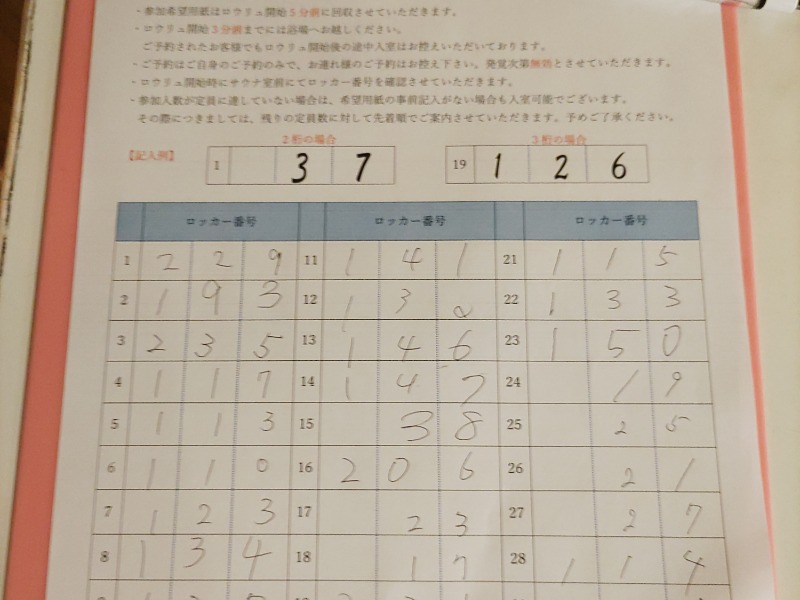 ・参加希望用紙はロウリュ開始5分前に回収させていただきます。
・ロウリュ開始3分前までには浴場へお越しください。
ご予約されたお客様でもロウリュ開始後の途中入室はお控えいただいております。
・ご予約はご自身のご予約のみで、お連れ様のご予約はお控え下さい。発覚次第無効とさせていただきます。
・ロウリュ開始時にサウナ室前にてロッカー番号を確認させていただきます。
・参加人数が定員に達していない場合は、希望用紙の事前記入がない場合も入室可能でございます。
その際につきましては、残りの定員数に対して先着順でご案内させていただきます。予めご了承ください。
2桁の場合 3桁の場合
【記入例】 1 3 7 19 1 2 6
ロッカー番号 ロッカー番号 ロッカー番号
1 2 2 9 11 1 4 1 21 1 1 5
2 1 9 3 12 1 3 22 1 3 3
3 2 3 5 13 1 4 6 23 1 5 0
4 1 1 7 14 1 4 7 24 1 9
5 1 1 3 15 3 8 25 2 5
6 1 1 0 16 2 0 6 26 2 1
7 1 2 3 17 2 3 27 2 7
8 1 3 4 18 1 7 28 1 1 4